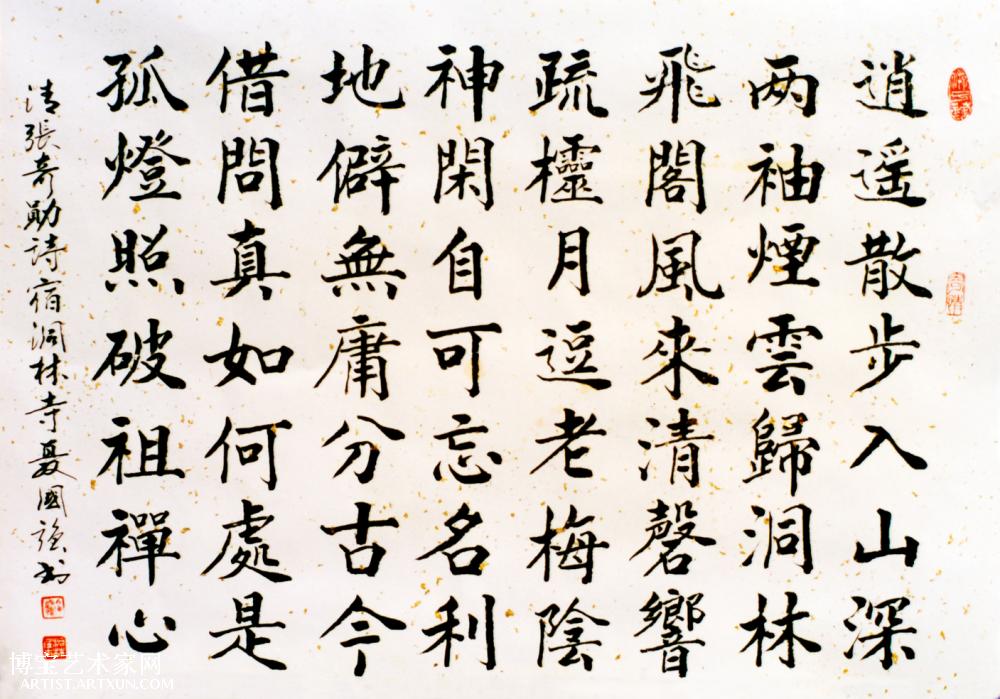 逍遥散步入山深
两袖煙雲歸洞林
飛閣風來清磬響
疏欞月逗老梅陰
神閑自可忘名利
地僻無庸分古今
借問真如何處是
孤燈照破祖禪心
清張奇勛詩宿洞林寺聂國強书
博宝艺术家网
ARTIST.ARTXUN.COM